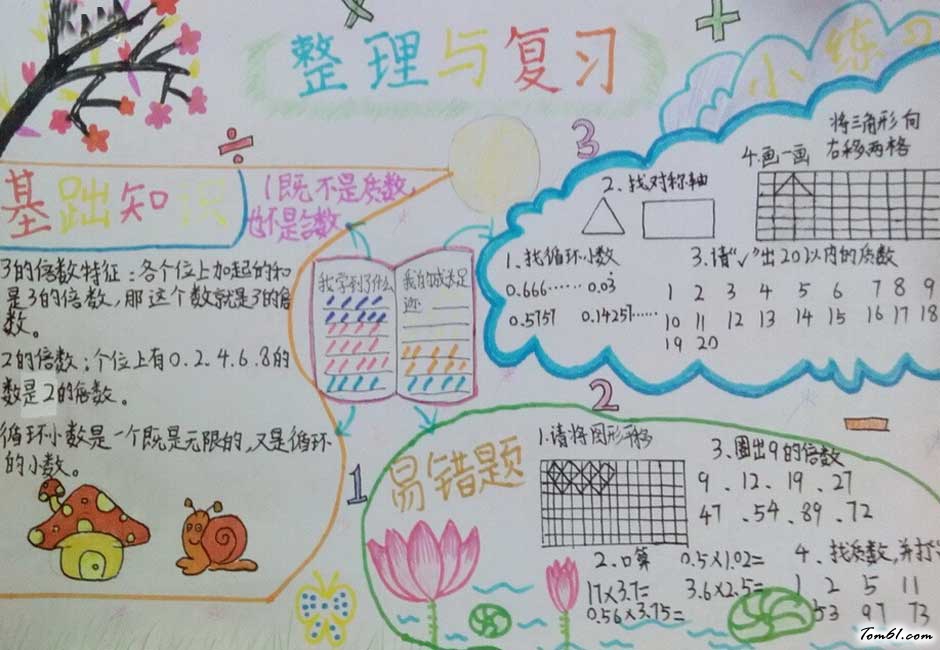 整理与复习
小练习
基础知识
1既不是质数,
也不是合数
3的倍数特征：各个位上加起的和
是3的倍数,那这个数就是3的倍
数。
2的倍数：个位上有0.2.4.6.8的
数是2的倍数。
循环小数是一个既是无限的,又是循环
的小数。
我学到了什么
我的成长足
迹
3
1.找循环小数
0.666…… 0.03
0.5757 0.14257……
2、找对称轴
3.请“✓”出20以内的质数
1 2 3 4 5 6 7 8 9
10 11 12 13 14 15 16 17 18
19 20
4.画一画
将三角形向
右移两格
2
1
易错题
1.请将图形平移
2.口算 0.5×1.02=
17×3.7= 3.6×2.5=
0.56×3.75=
3、圈出9的倍数
9、12、19、27
47、54、89、72
4、找质数,并打
1 2 5 11
53 97 73
Tom61.com